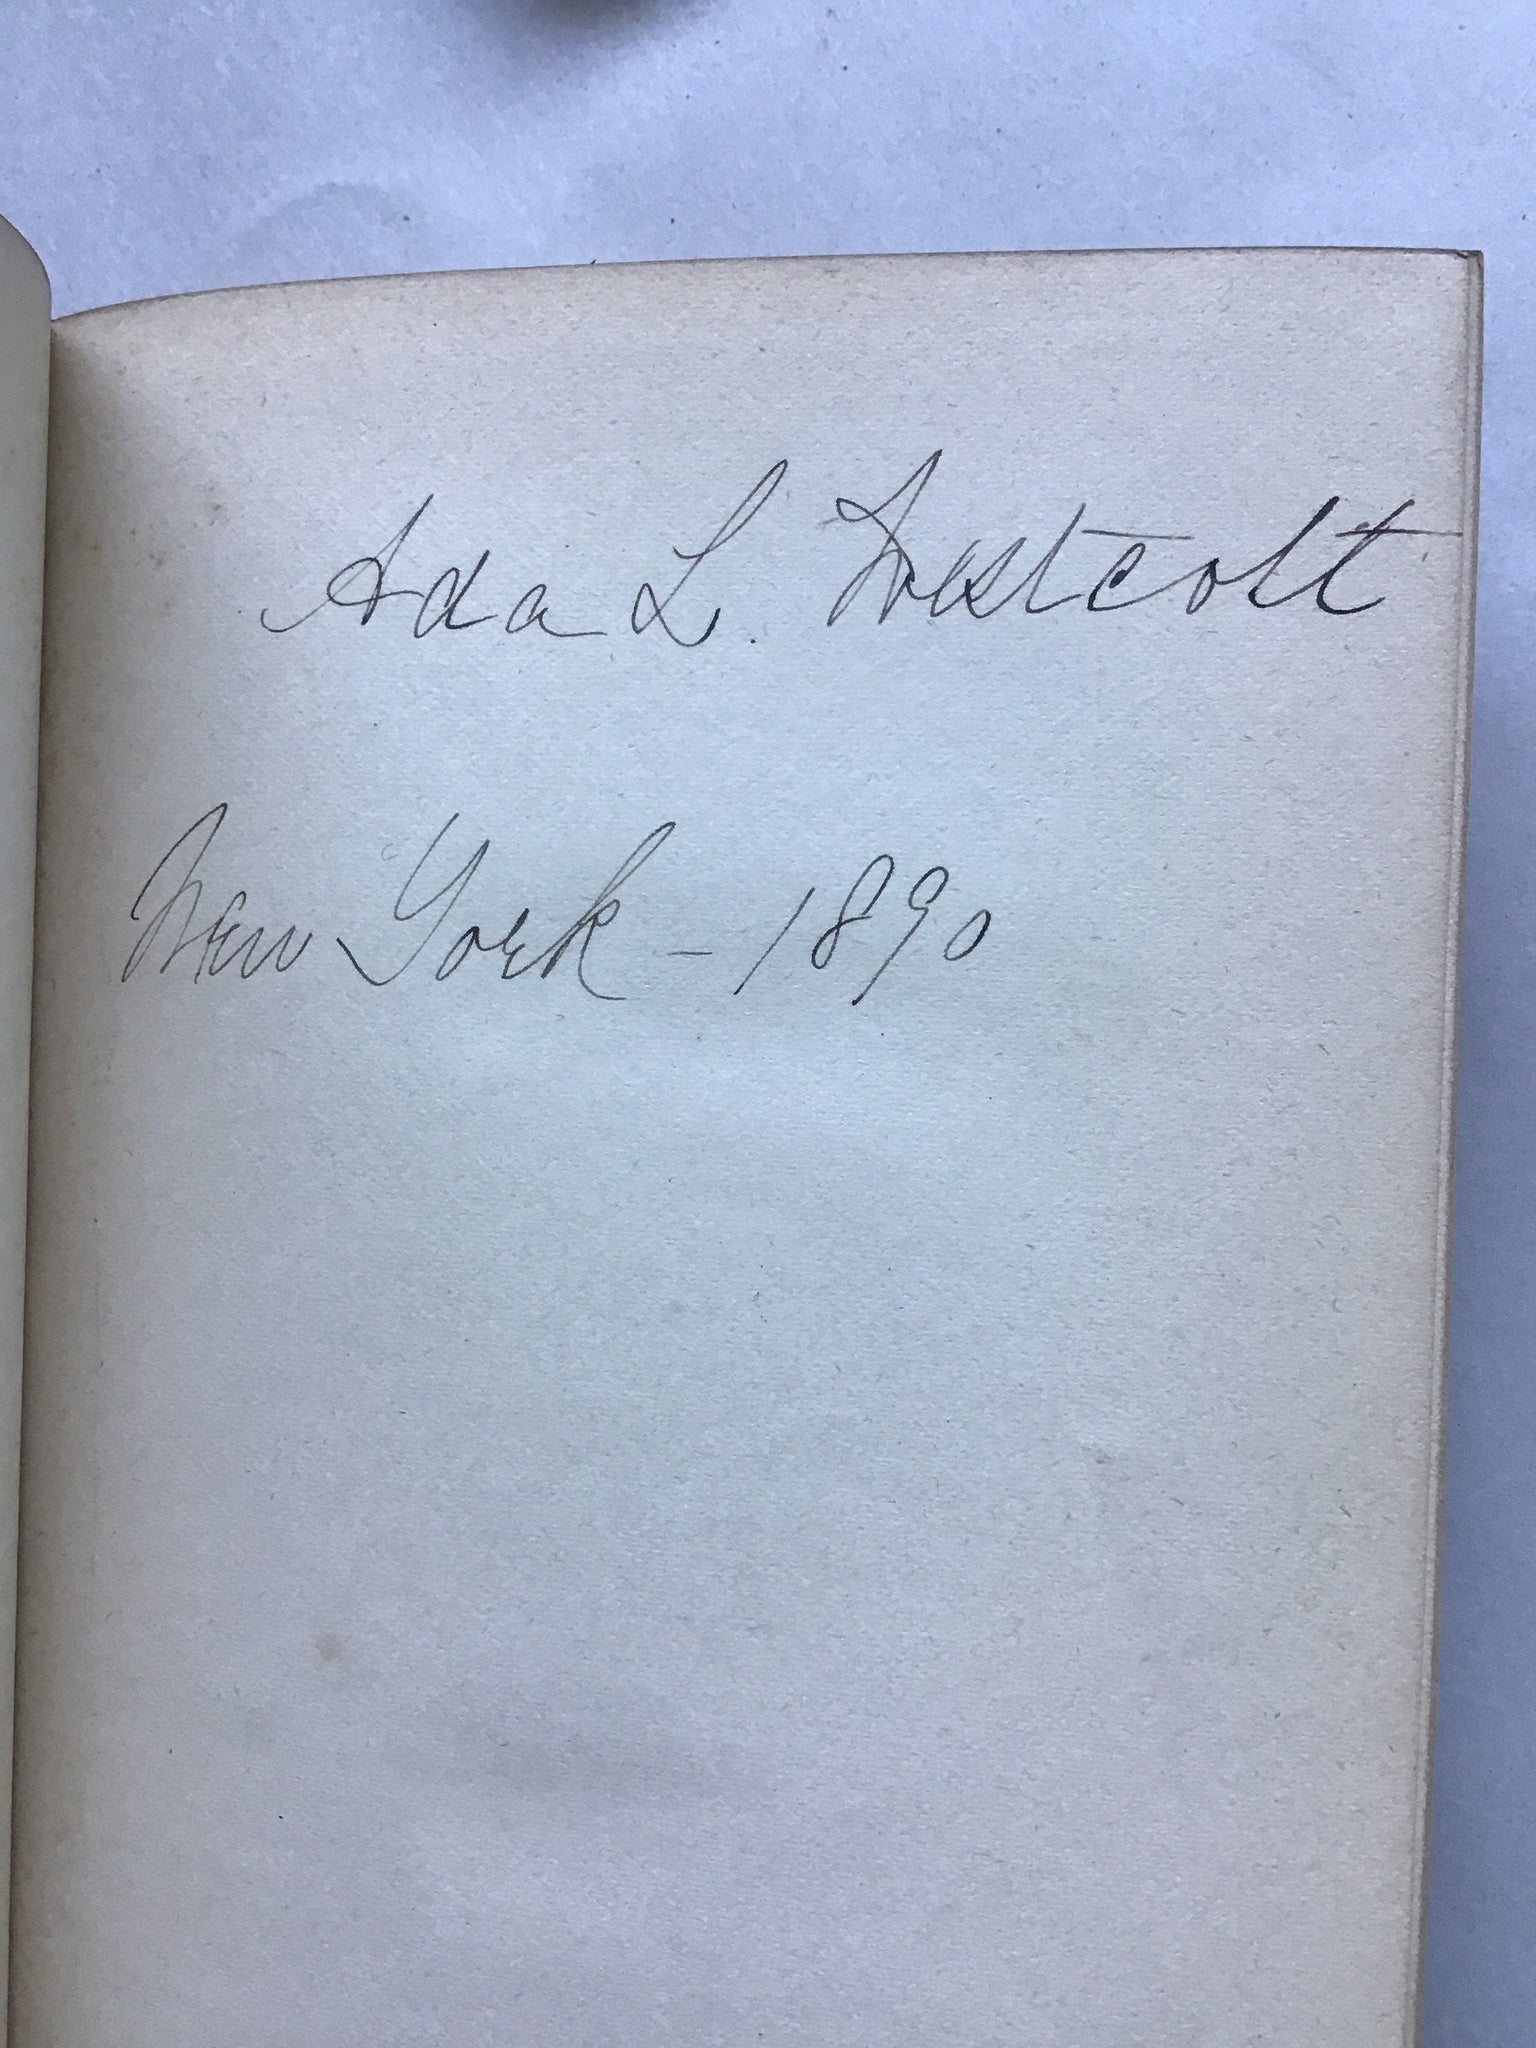 Ada L. Westcott
New York - 1890